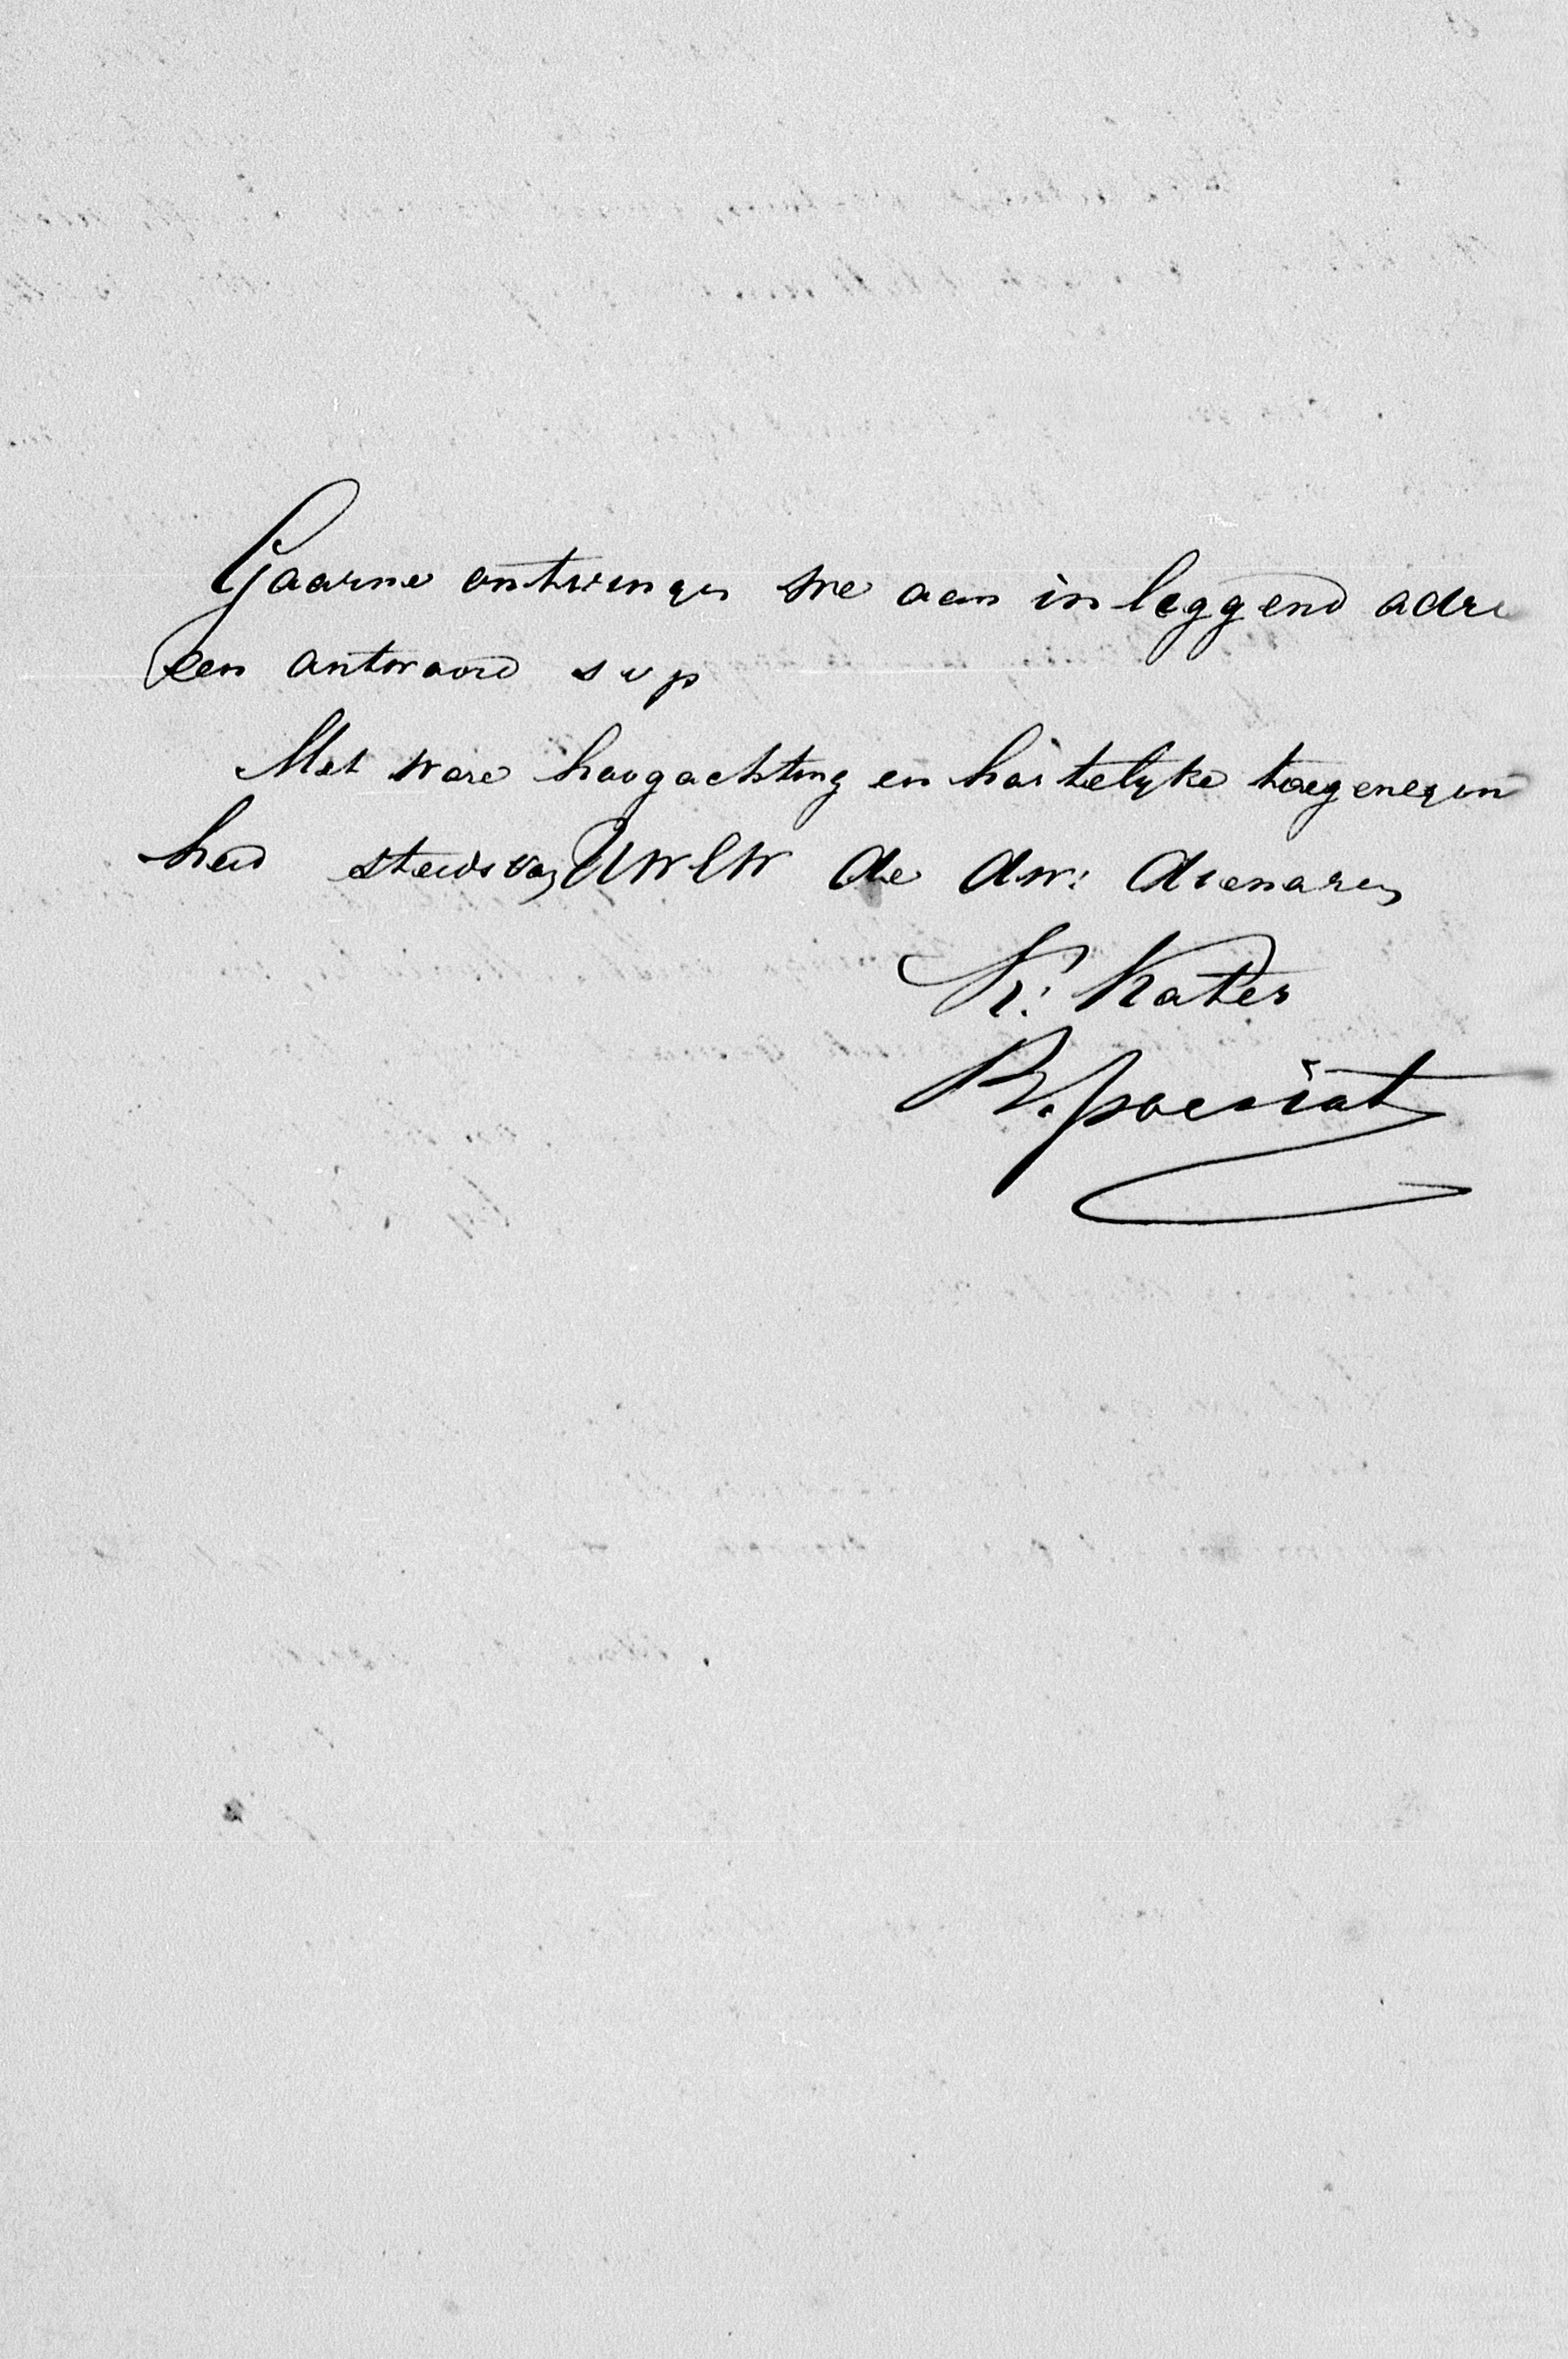 Gaarne ontvingen we aan inleggend adre
een antwoord svp
Met ware hoogachting en hartelyke toegenegen
heid steeds van UWEW de dw: dienaren
K: Kater
B. Poesiat